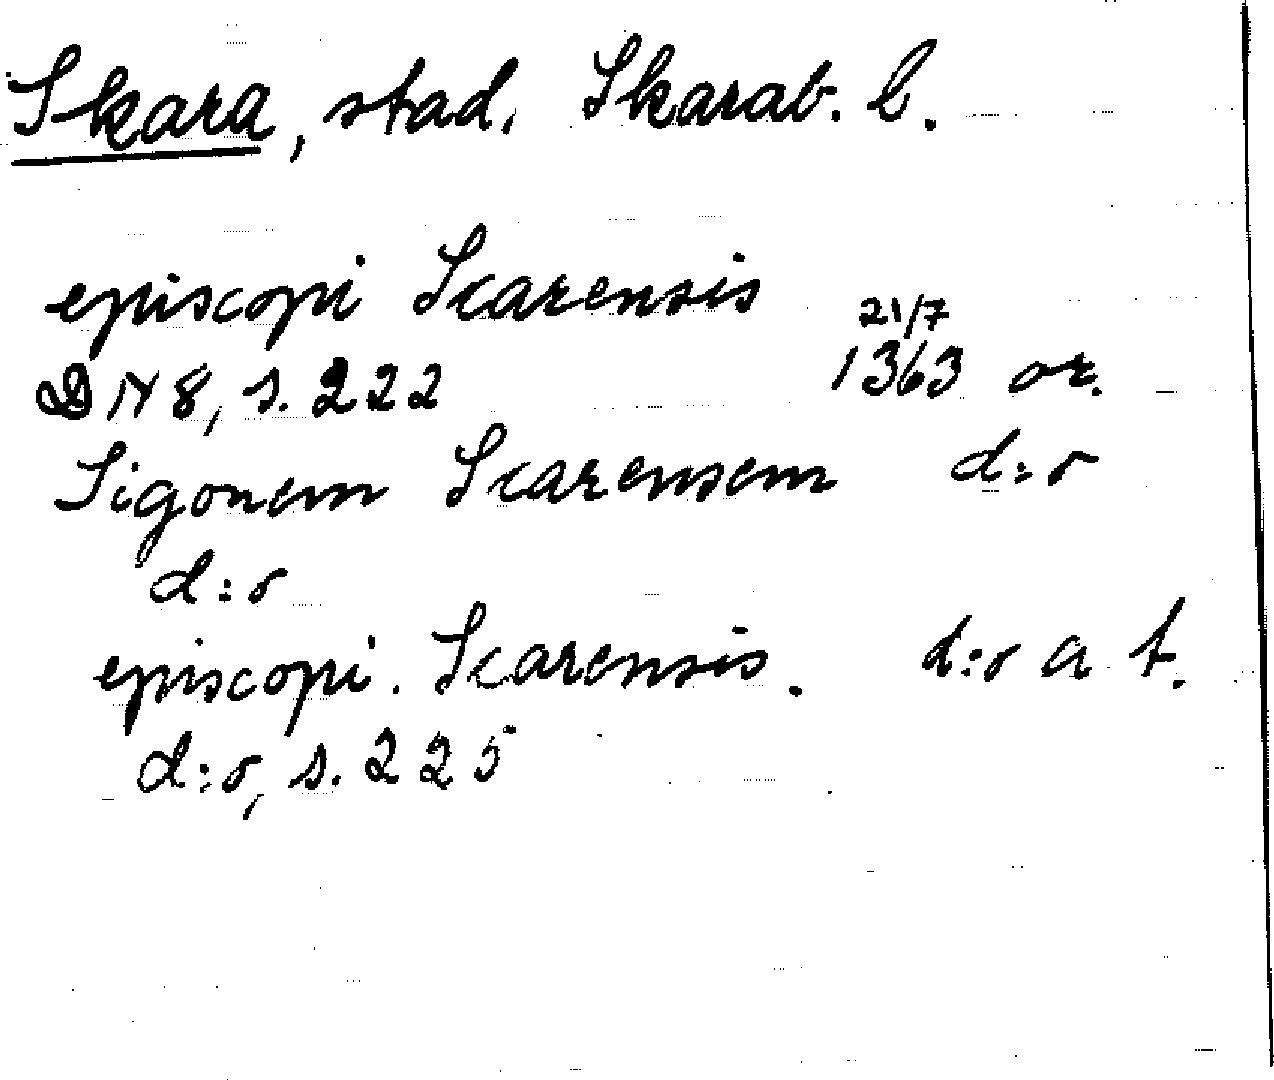 Skara, stad. Skarab. l.
episcopi Scarensis
21/7
DN 8, s. 222 1363 or.
Sigonem Scarensem d:o
d:o
episcopi. Scarensis. d:o a t.
d:o, s. 225